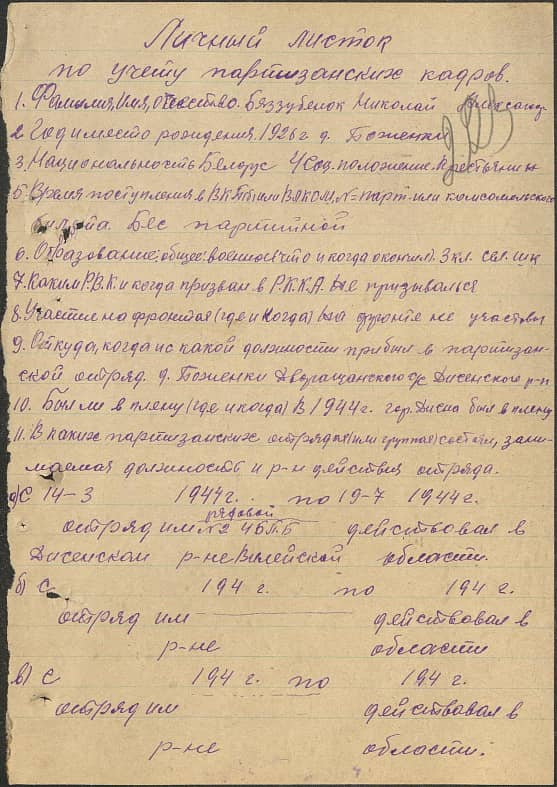 Личный листок
по учету партизанских кадров.
1. Фамилия, имя, отчество. Беззубенок Николай Александ
2. Год и место рождения. 1926 г д. Боженки
3. Национальность Белорус 4 Соц. положение. Крестьянин
5. Время поступления в ВКП(б) или ВЛКСМ, №-парт. или комсомольского
билета. Бес партийной
6. Образование: общее: военное (что и когда окончил). 3 кл. сел. шк
7. Каким Р.В.К и когда призван в Р.К.К.А. Не призывался
8. Участие на фронтах (где и когда) На фронте не участвы
9. Откуда, когда и с какой должности прибыл в партизан-
ской остряд. д. Боженки Дворащанского с/с Дисенского р-н
10. Был ли в плену (где и когда) В 1944 г. гор. Дисна был в плену
11. В каких партизанских острядах (или группах) состоял, зани-
маемая должность и р-н действия остряда.
а) С 14-3 1944 г. по 19-7 1944 г.
рядовой
остряд им. №2 4Б.П.Б действовал в
Дисенском р-не Вилейской области.
б) С 194 г. по 194 г.
остряд им действовал в
р-не области
в) С 194 г. по 194 г.
остряд им действовал в
р-не области.